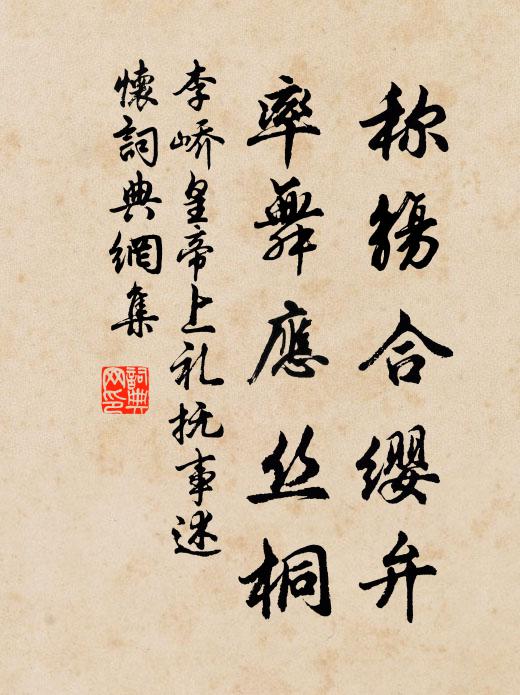 称觞合缨弁
率舞應丝桐
李峤皇帝上礼抚事述
懷詞典網集
詞典网印